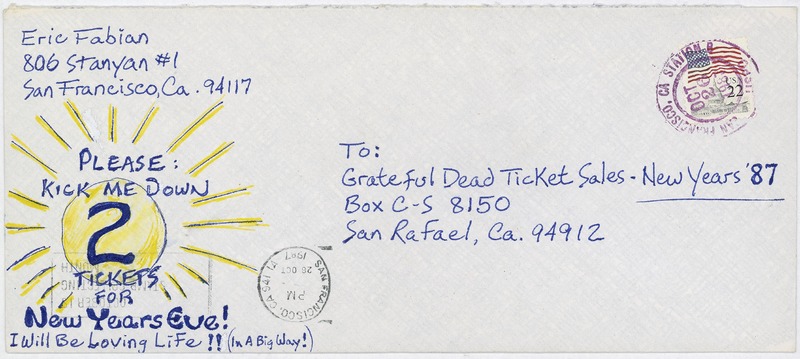 Eric Fabian
806 Stanyan #1
San Francisco, Ca. 94117
PLEASE:
KICK ME DOWN
2
TICKETS
FOR
New Years Eve!
I Will Be Loving Life !! (In A Big Way!)
To:
Grateful Dead Ticket Sales - New Years '87
Box C-S 8150
San Rafael, Ca. 94912
SAN FRANCISCO, CA STATION
OCT
SAN FRANCISCO,
22
SAN FRANCISCO, CA 941 1A
PM
28 OCT
1987
OCTOBER IS
STAMP COLLECTING
MONTH